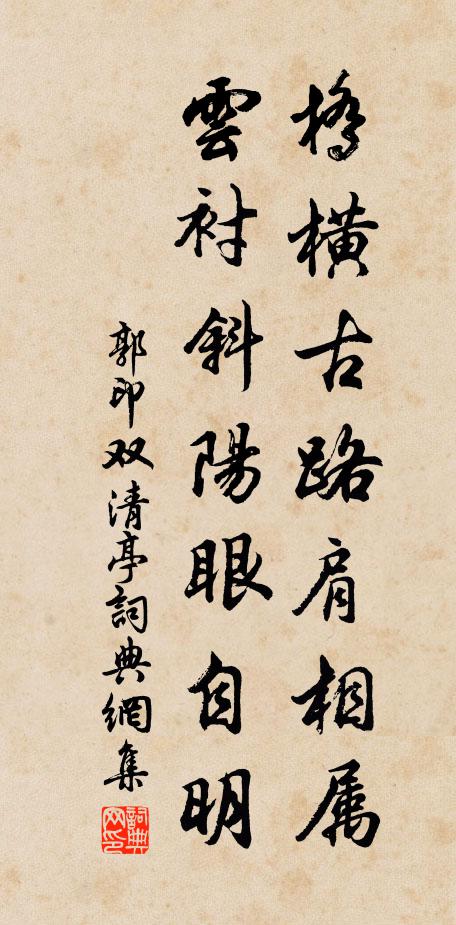 橋橫古路肩相属
雲衬斜陽眼自明
郭印双清亭詞典網集
詞典网印